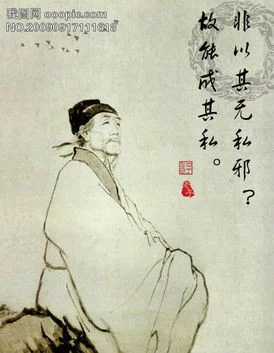 我图网 ooopic.com
NO.20090917111615
非以其无私邪?
故能成其私。